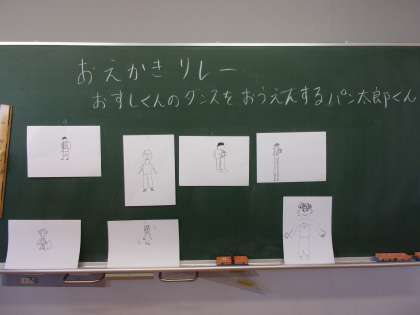 おえかきリレー
おすしくんのダンスをおうえんするパン太郎くん